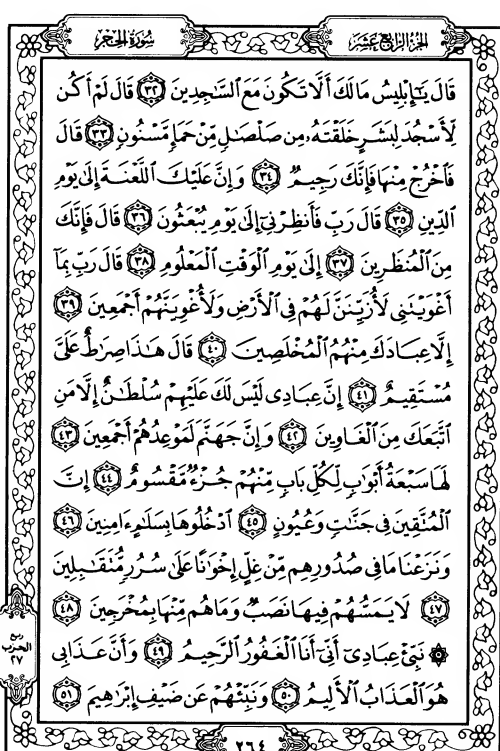 سُورَةُ الحِجْرِ
الجُزءُ الرَّابِعَ عَشَرَ
قَالَ يَـٰٓإِبْلِيسُ مَا لَكَ أَلَّا تَكُونَ مَعَ ٱلسَّـٰجِدِينَ ٣٢ قَالَ لَمْ أَكُن
لِّأَسْجُدَ لِبَشَرٍ خَلَقْتَهُۥ مِن صَلْصَـٰلٍ مِّنْ حَمَإٍ مَّسْنُونٍ ٣٣ قَالَ
فَٱخْرُجْ مِنْهَا فَإِنَّكَ رَجِيمٌ ٣٤ وَإِنَّ عَلَيْكَ ٱللَّعْنَةَ إِلَىٰ يَوْمِ
ٱلدِّينِ ٣٥ قَالَ رَبِّ فَأَنظِرْنِىٓ إِلَىٰ يَوْمِ يُبْعَثُونَ ٣٦ قَالَ فَإِنَّكَ
مِنَ ٱلْمُنظَرِينَ ٣٧ إِلَىٰ يَوْمِ ٱلْوَقْتِ ٱلْمَعْلُومِ ٣٨ قَالَ رَبِّ بِمَآ
أَغْوَيْتَنِى لَأُزَيِّنَنَّ لَهُمْ فِى ٱلْأَرْضِ وَلَأُغْوِيَنَّهُمْ أَجْمَعِينَ ٣٩
إِلَّا عِبَادَكَ مِنْهُمُ ٱلْمُخْلَصِينَ ٤٠ قَالَ هَـٰذَا صِرَٰطٌ عَلَىَّ
مُسْتَقِيمٌ ٤١ إِنَّ عِبَادِى لَيْسَ لَكَ عَلَيْهِمْ سُلْطَـٰنٌ إِلَّا مَنِ
ٱتَّبَعَكَ مِنَ ٱلْغَاوِينَ ٤٢ وَإِنَّ جَهَنَّمَ لَمَوْعِدُهُمْ أَجْمَعِينَ ٤٣
لَهَا سَبْعَةُ أَبْوَٰبٍ لِّكُلِّ بَابٍ مِّنْهُمْ جُزْءٌ مَّقْسُومٌ ٤٤ إِنَّ
ٱلْمُتَّقِينَ فِى جَنَّـٰتٍ وَعُيُونٍ ٤٥ ٱدْخُلُوهَا بِسَلَـٰمٍ ءَامِنِينَ ٤٦
وَنَزَعْنَا مَا فِى صُدُورِهِم مِّنْ غِلٍّ إِخْوَٰنًا عَلَىٰ سُرُرٍ مُّتَقَـٰبِلِينَ
٤٧ لَا يَمَسُّهُمْ فِيهَا نَصَبٌ وَمَا هُم مِّنْهَا بِمُخْرَجِينَ ٤٨
۞ نَبِّئْ عِبَادِىٓ أَنِّىٓ أَنَا ٱلْغَفُورُ ٱلرَّحِيمُ ٤٩ وَأَنَّ عَذَابِى
هُوَ ٱلْعَذَابُ ٱلْأَلِيمُ ٥٠ وَنَبِّئْهُمْ عَن ضَيْفِ إِبْرَٰهِيمَ ٥١
ربع
الحزب
٢٧
٢٦٤